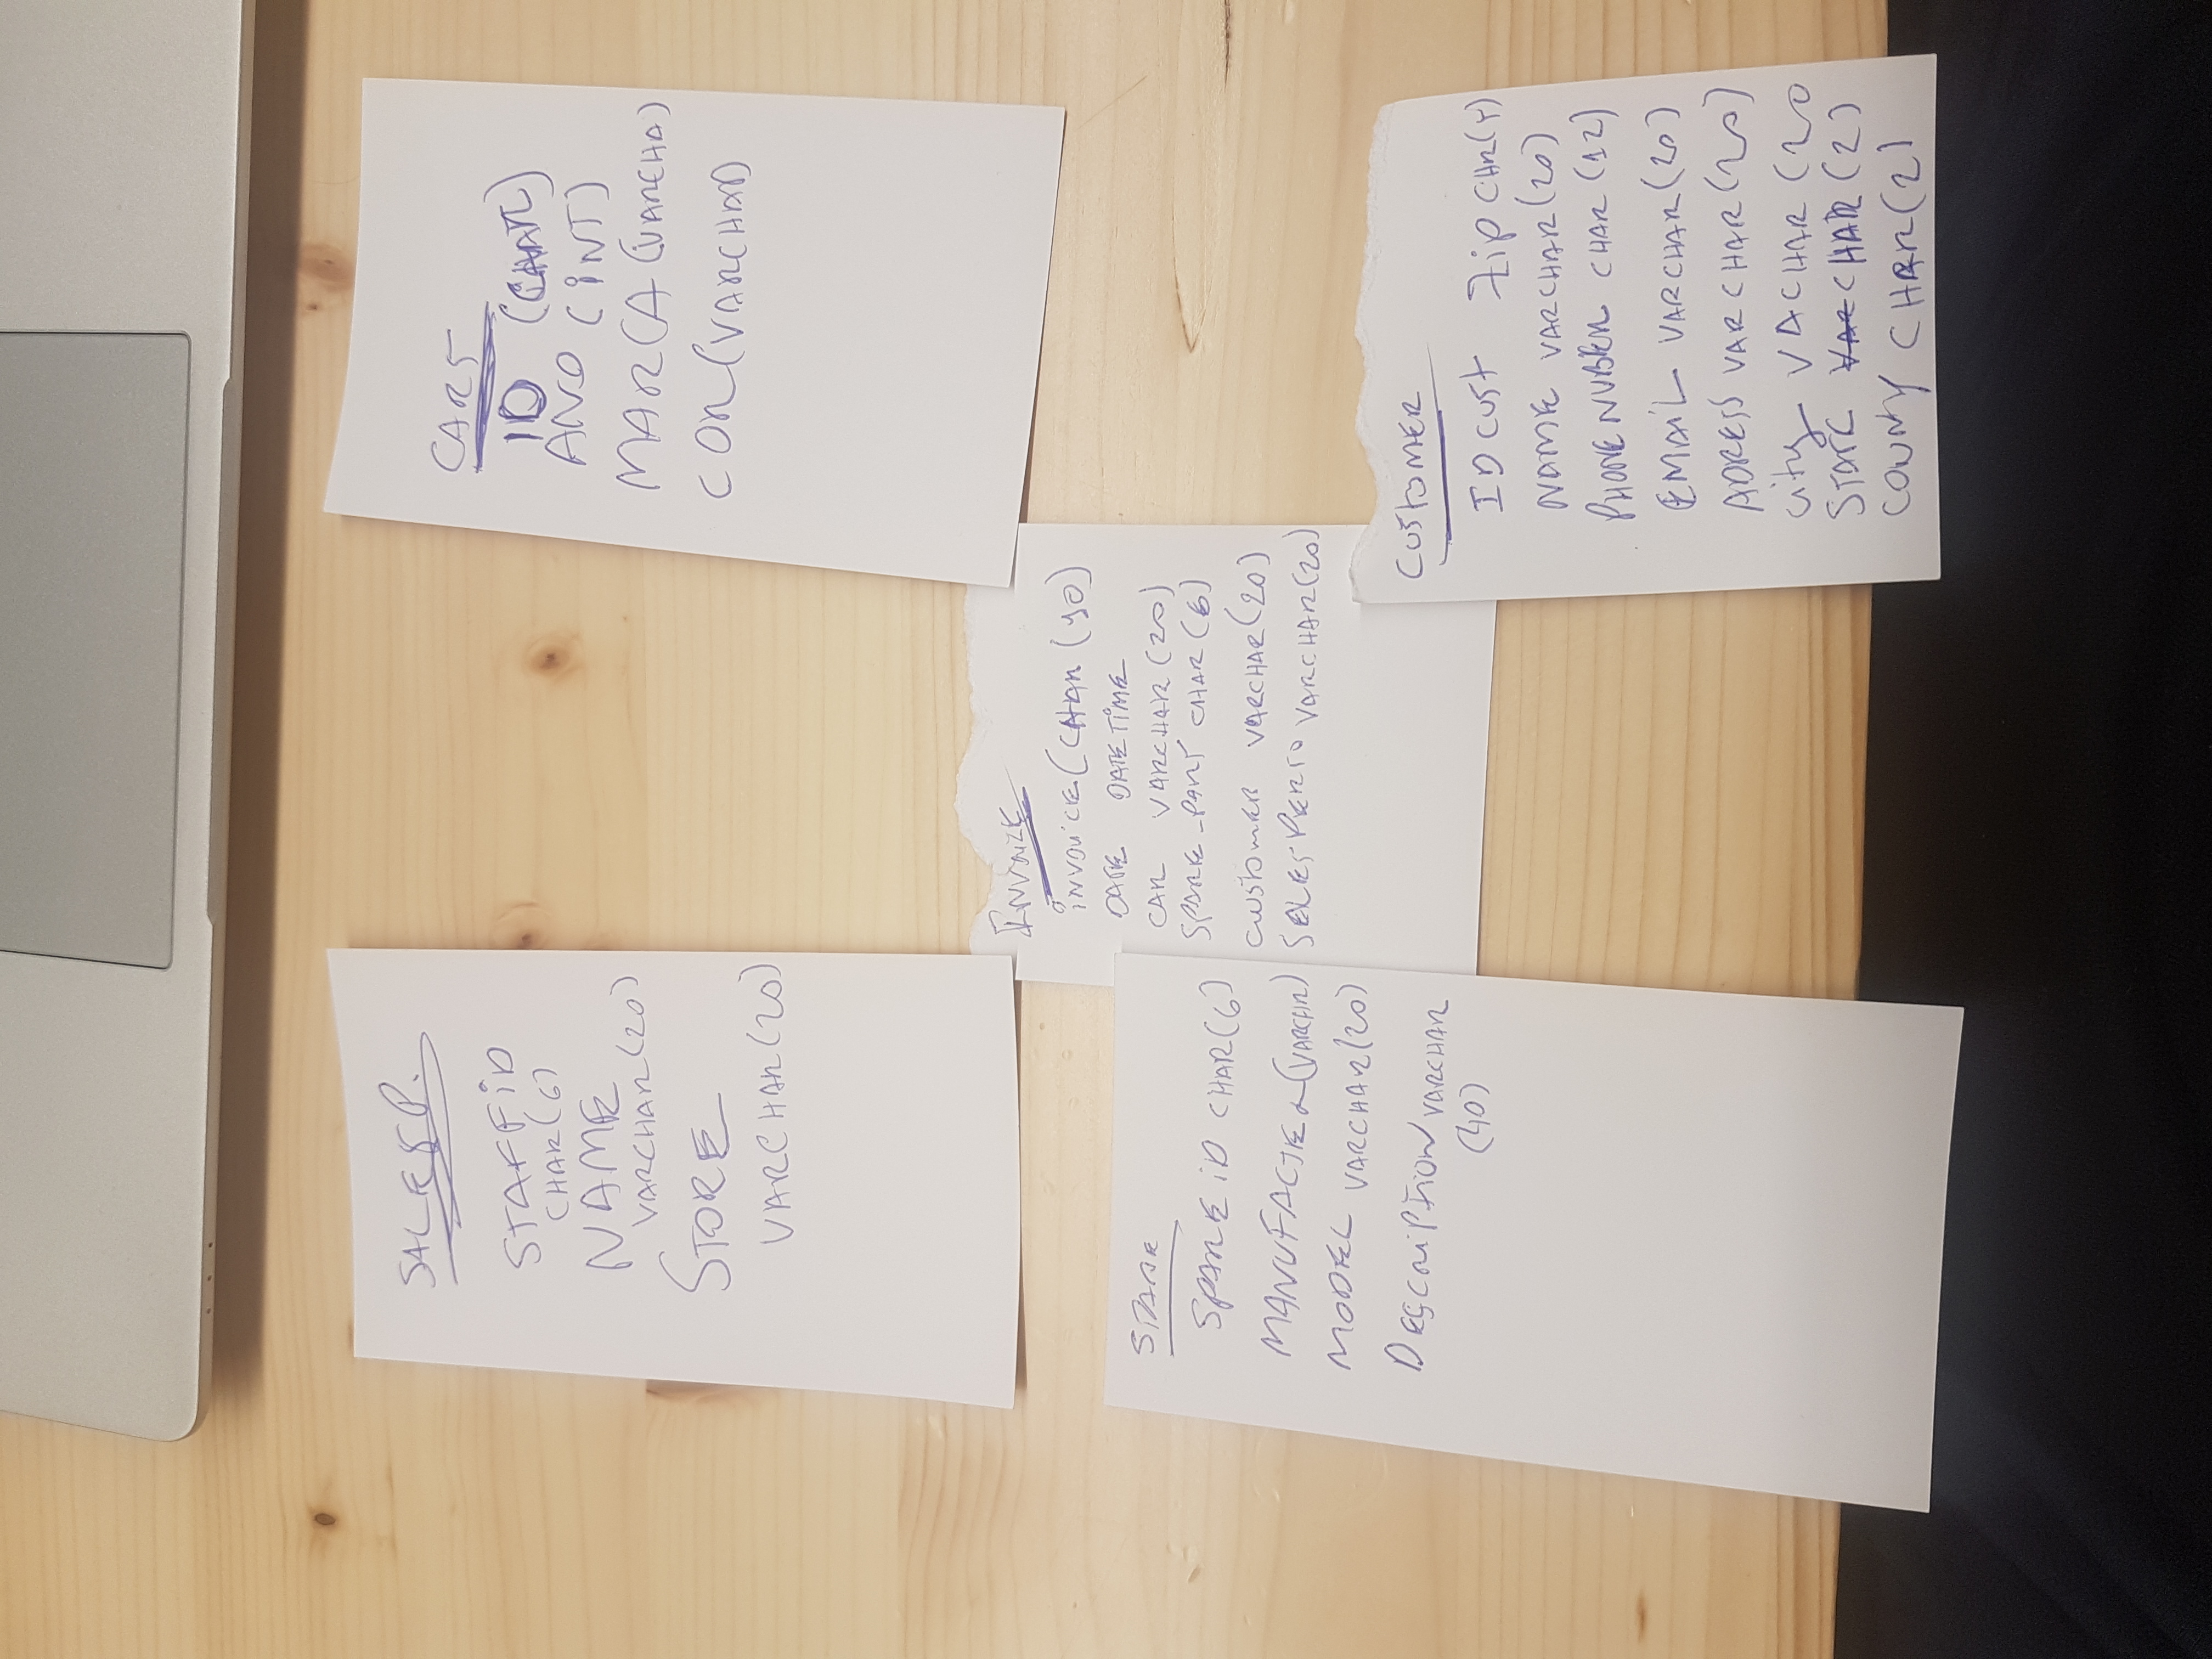 SALESP.
STAFFiD
CHAR(6)
NAME
VARCHAR(20)
STORE
VARCHAR(20)
CARS
ID (CHAR)
ANO (iNT)
MARCA (VARCHA)
COR (VARCHAR)
INVOICE
iNVOiCE (CHAR (10)
DATE DATETiME
CAR VARCHAR (20)
SPARE-PART CHAR(6)
CUSTOMER VARCHAR(20)
SELESPERSO VARCHAR(20)
SPARE
SPARE iD CHAR(6)
MANUFACTER (VARCHR)
MODEL VARCHAR(20)
DESCRiPTiON VARCHAR
(40)
CUSTOMER
ID CUST Zip
NAME VARCHAR(20)
PHONE NUBER CHAR (12)
EMAiL VARCHAR(20)
ADRESS VARCHAR(20)
City VACHAR (20
STATE CHAR (2)
COUNY CHAR(2)